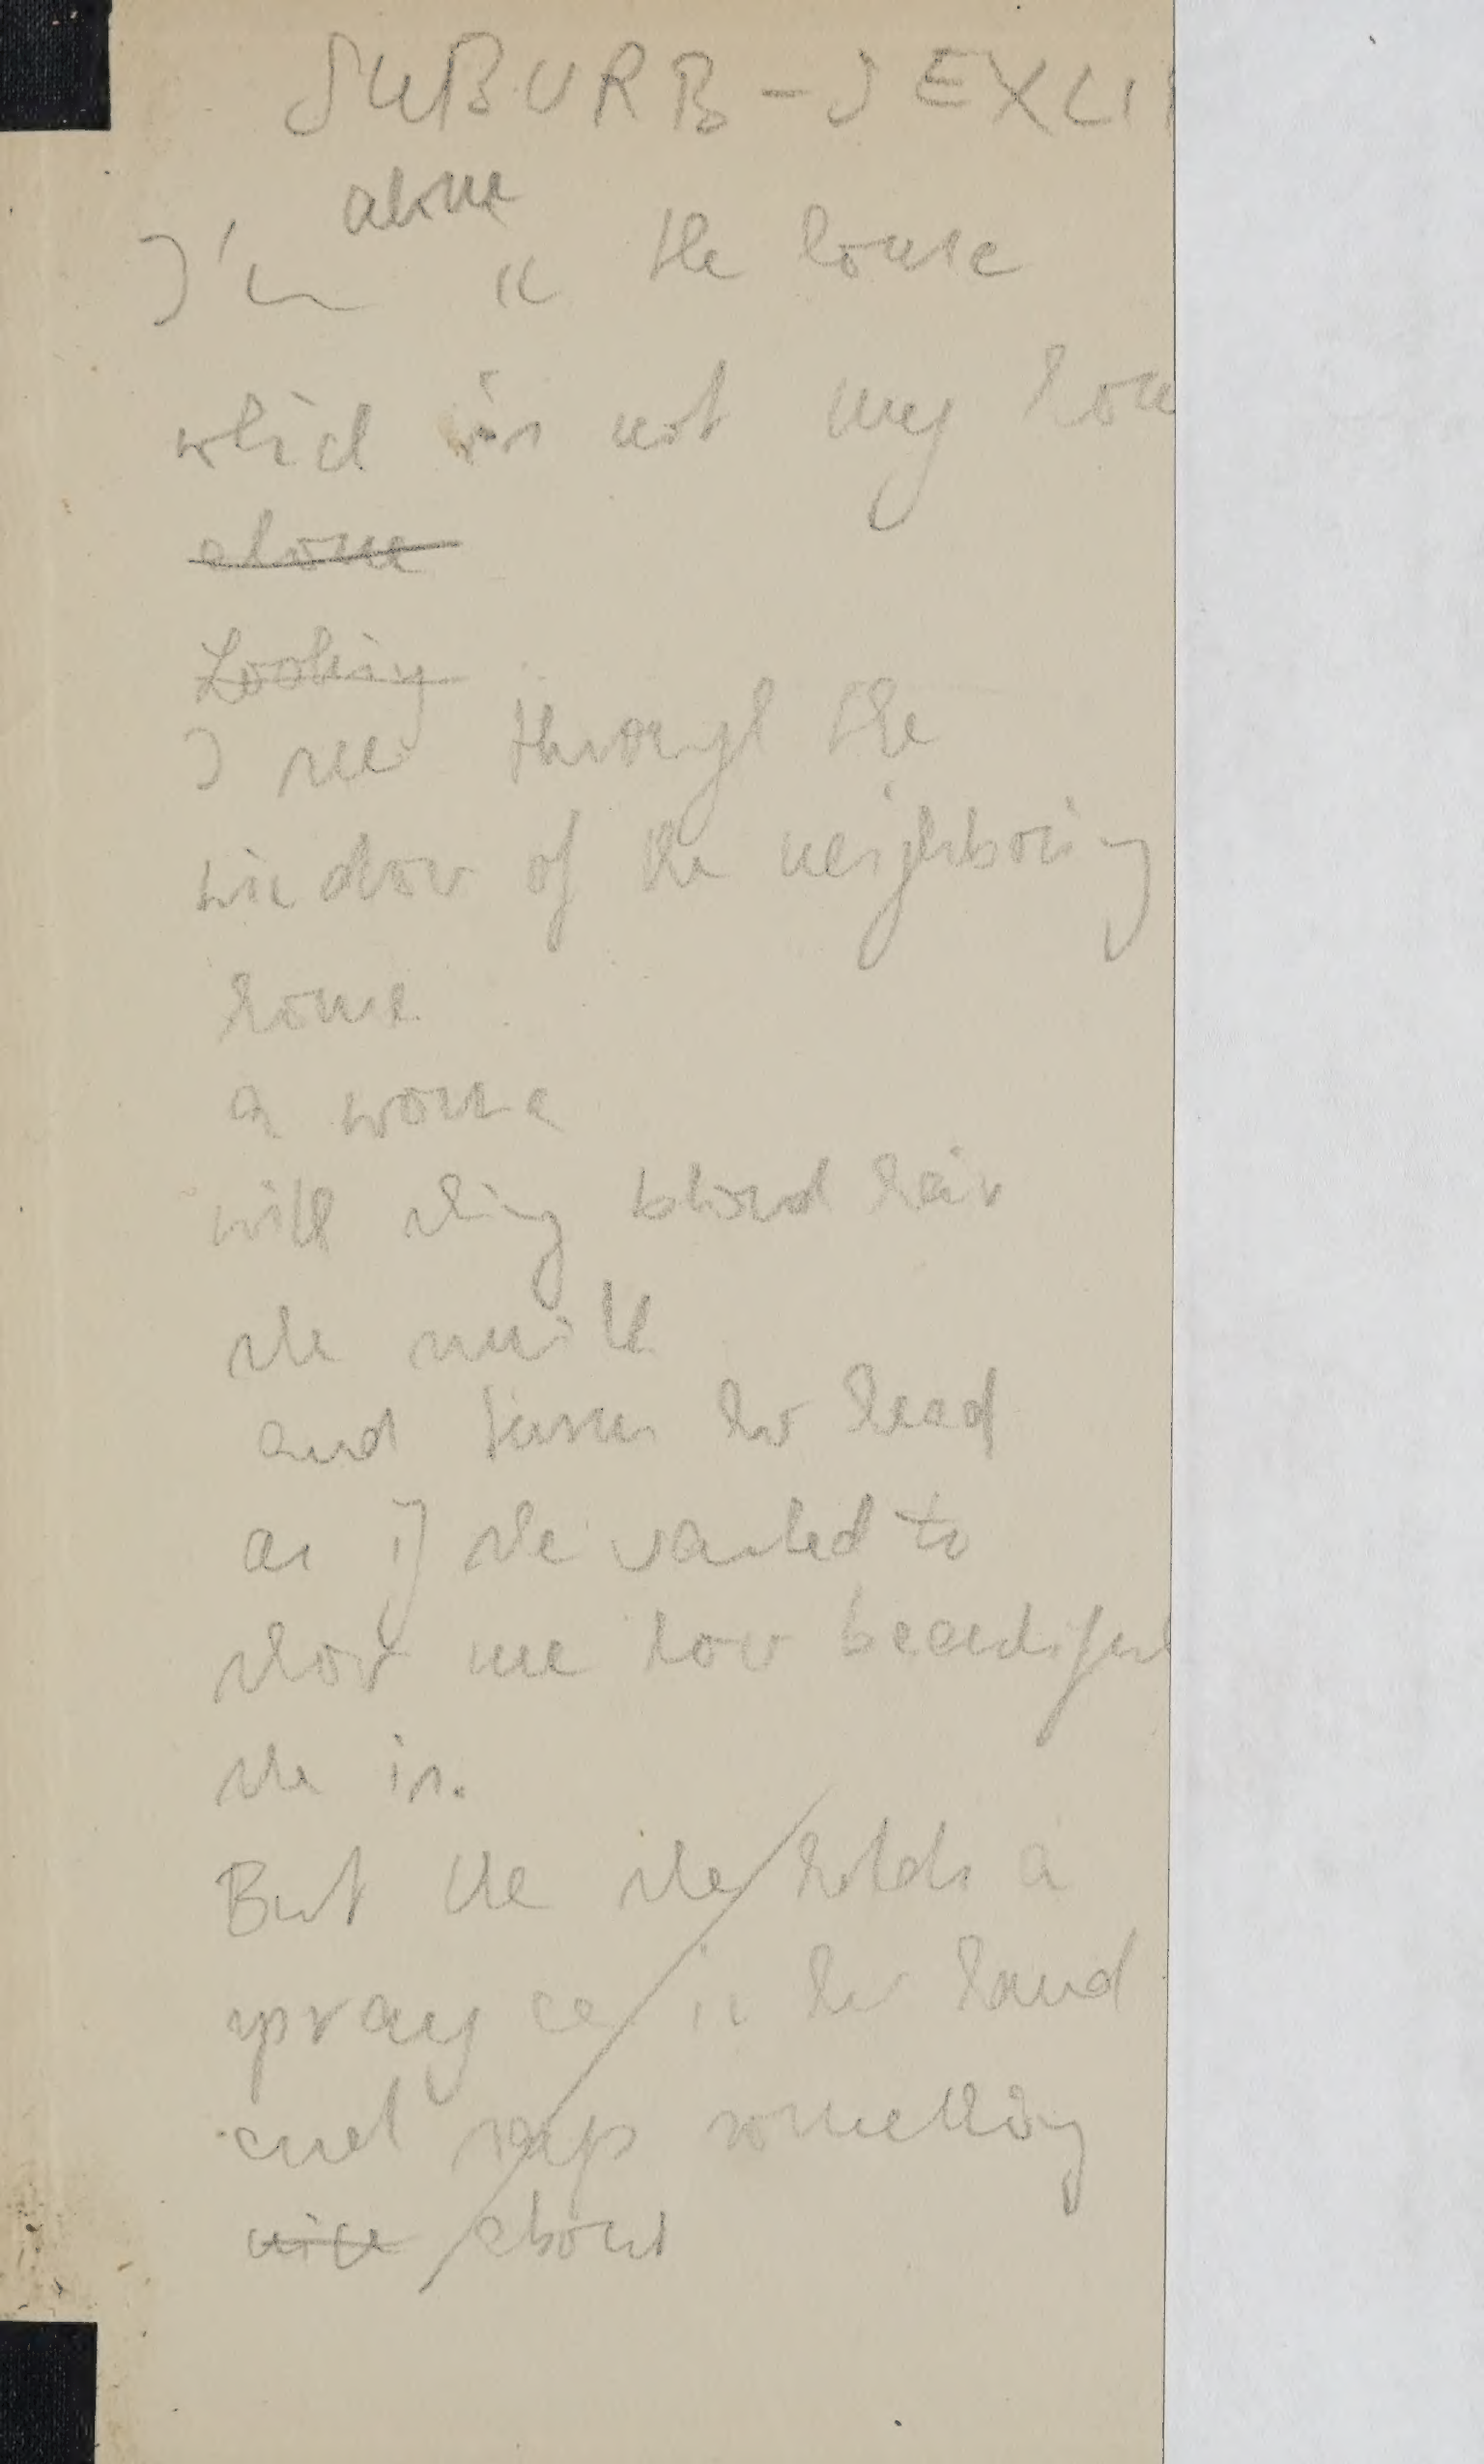 SUBURB - J EXLI
alone
I'm in the house
which is not my hou
alone
Looking
I see through the
window of the neighboring
house
a woma
with shiny blond hair
she smile
and turns her head
as if she wanted to
show me how beautiful
she is.
But the she holds a
spray ca in her hand
and says something
nice about